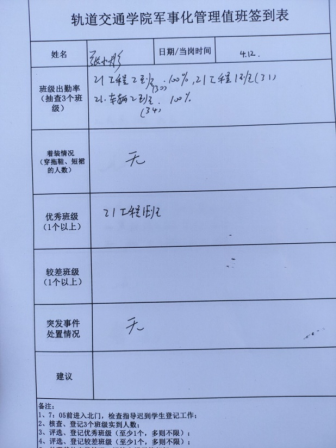 轨道交通学院军事化管理值班签到表
姓名
日期/当岗时间
4.12.
班级出勤率
(抽查3个班
级)
21工程2班(30).100%,21工程1班(31)
21.车辆2班.100%
(34)
着装情况
(穿拖鞋、短裙
的人数)
无
优秀班级
(1个以上)
21工程1班
较差班级
(1个以上)
突发事件
处置情况
无
建议
备注:
1、7:05前进入北门,检查指导迟到学生登记工作;
2、核查、登记3个班级实到人数;
3、评选、登记优秀班级(至少1个,多则不限);
4、评选、登记较差班级(至少1个,多则不限);